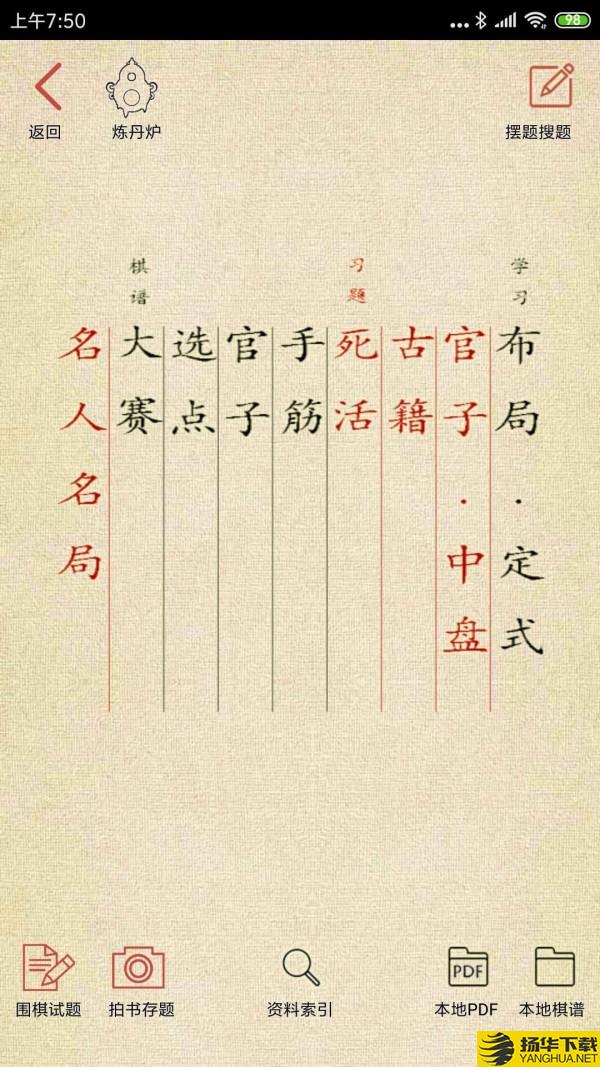 上午7:50
98
返回
炼丹炉
摆题搜题
学习
布局·定式
官子·中盘
习题
古籍
死活
手筋
官子
选点
棋谱
大赛
名人名局
围棋试题
拍书存题
资料索引
PDF
本地PDF
本地棋谱
扬华下载
YANGHUA.NET